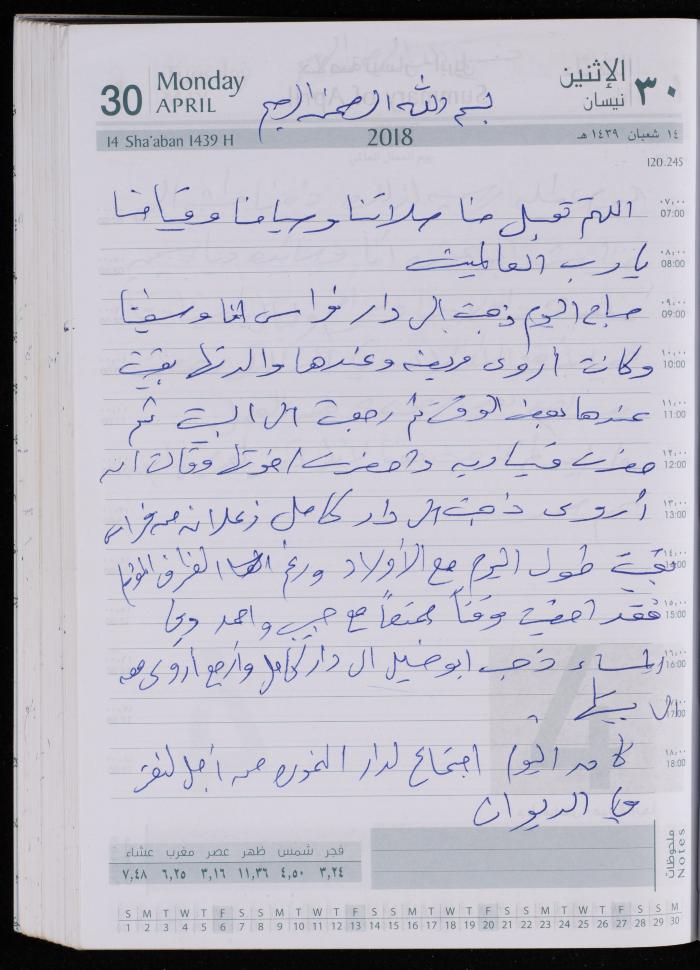 30 Monday APRIL
الإثنين ٣٠ نيسان
بسم الله الرحمن الرحيم
14 Sha'aban 1439 H 2018 ١٤ شعبان ١٤٣٩ هـ
120.245
اللهم تقبل منا صلاتنا وصيامنا وقيامنا
٠٧,٠٠ 07:00
يا رب العالمين
٠٨,٠٠ 08:00
صباح اليوم ذهبت الى دار فراس
٠٩,٠٠ 09:00
وكانت أروى مريضة وعندها والدتها بقيت
١٠,٠٠ 10:00
عندها بعض الوقت ثم رجعت الى البيت ثم
١١,٠٠ 11:00
حضرت واحضرت اخوتها وقالت ان
١٢,٠٠ 12:00
أروى ذهبت الى دار كامل زعلانه من فراس
١٣,٠٠ 13:00
بقيت طول اليوم مع الأولاد ورغم الظرف المؤلم
١٤,٠٠
فقد امضيت وقتاً ممتعاً مع حبيب واحمد وفي
١٥,٠٠ 15:00
المساء ذهب ابو الى دار كامل وأرجع أروى معه
١٦,٠٠ 16:00
الى بيتها
17:00
كان اليوم اجتماع لدار من أجل
١٨,٠٠ 18:00
في الديوان
فجر شمس ظهر عصر مغرب عشاء
٣,٢٤ ٤,٥٠ ١١,٣٦ ٣,١٦ ٦,٢٥ ٧,٤٨
ملحوظات Notes
S M T W T F S S M T W T F S S M T W T F S S M T W T F S S M
1 2 3 4 5 6 7 8 9 10 11 12 13 14 15 16 17 18 19 20 21 22 23 24 25 26 27 28 29 30